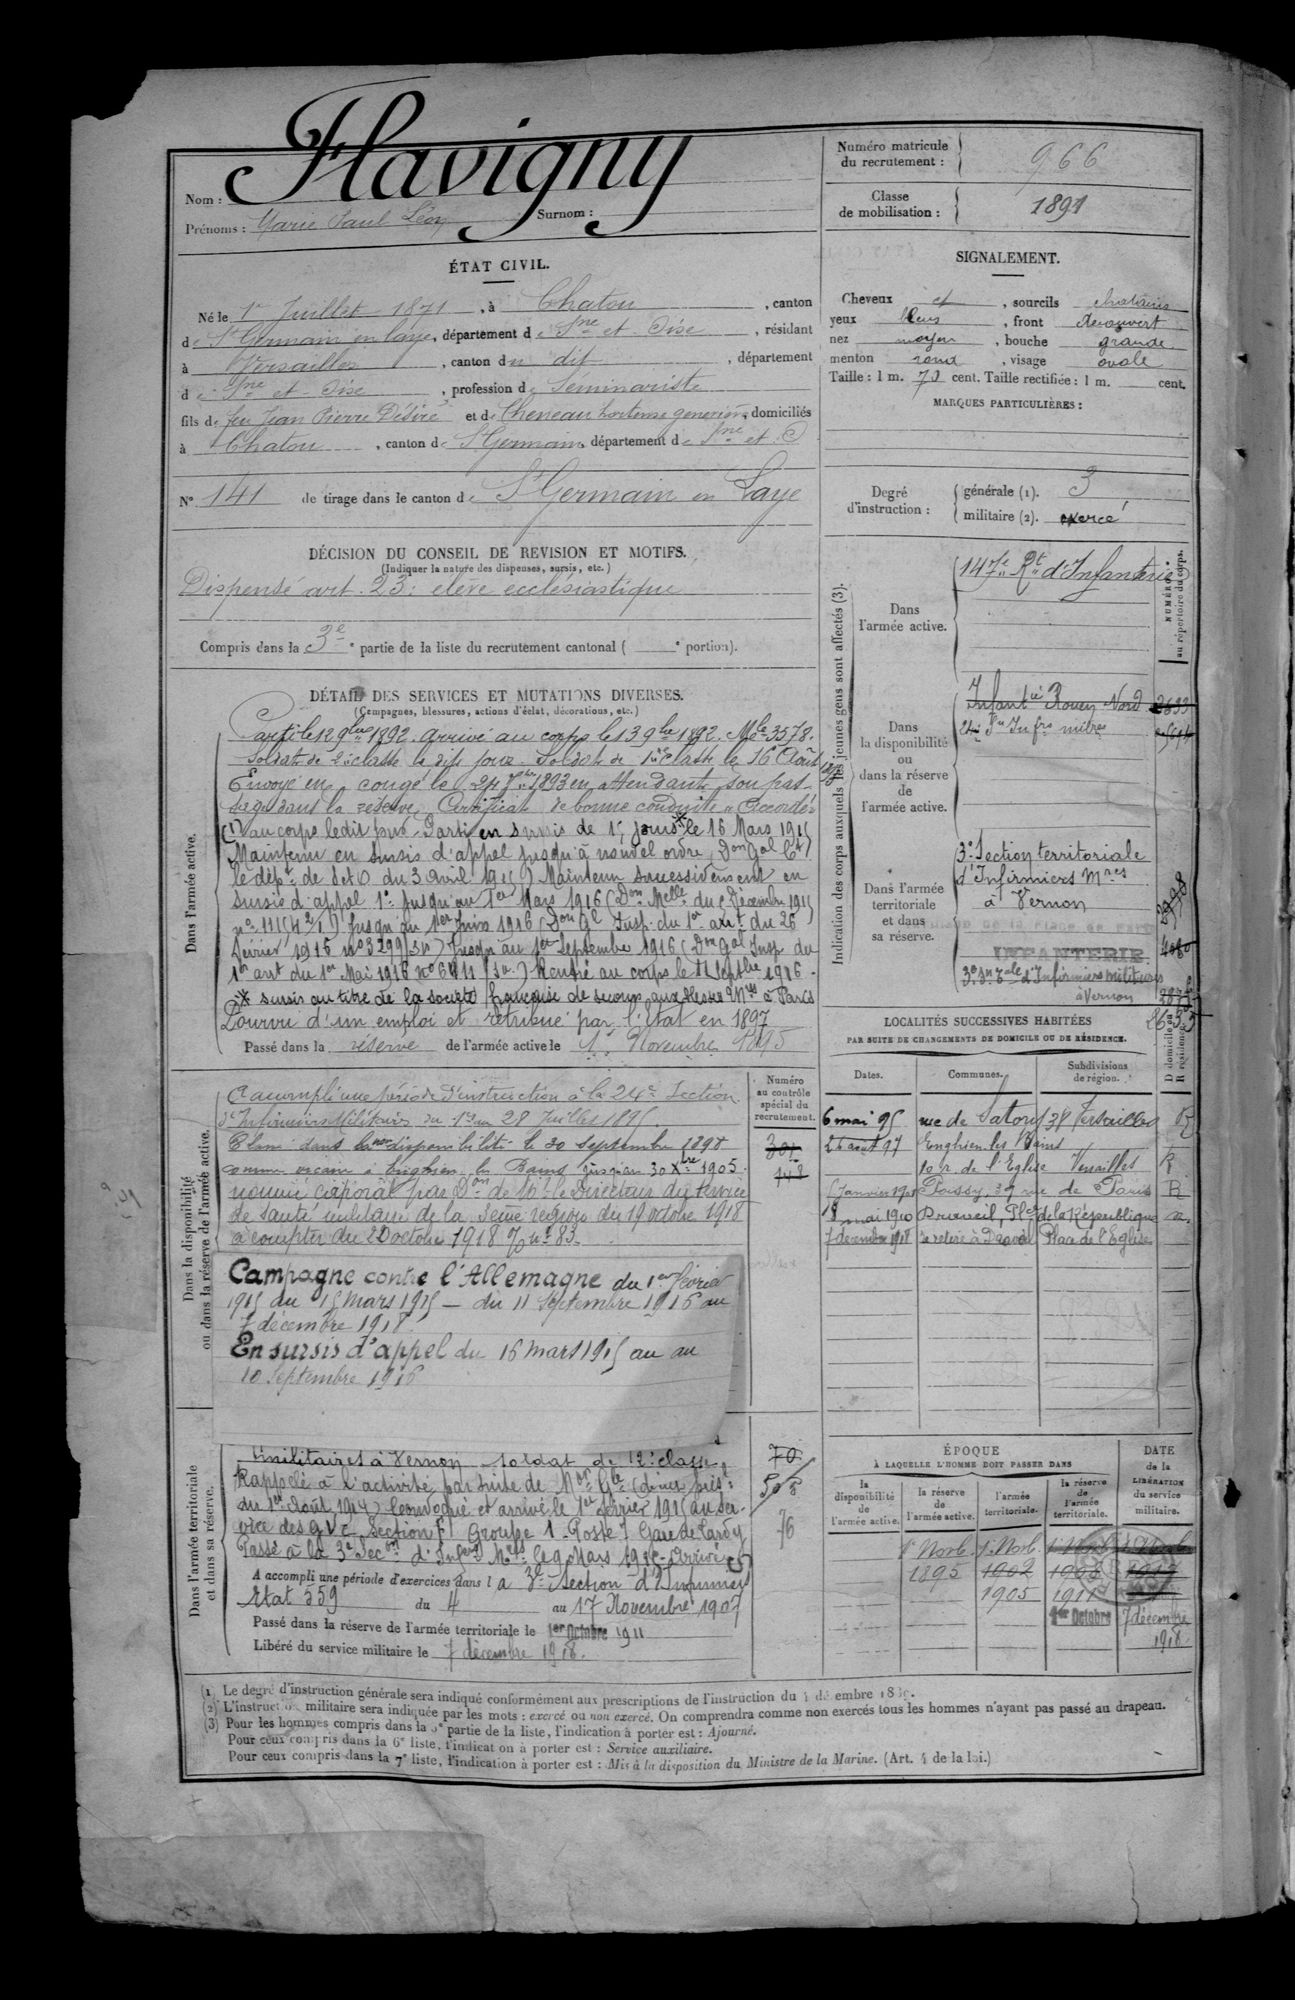 Nom : Flavigny
Prénoms : Marie Paul Léon Surnom :
Numéro matricule du recrutement : 966
Classe de mobilisation : 1891
ÉTAT CIVIL.
Né le 1er Juillet 1871, à Chatou, canton
de St Germain en laye, département de Sne et Oise, résidant
à Versailles, canton du dit, département
de Sne et Oise, profession de Séminariste
fils de feu Jean Pierre Désiré et de Cheneau hortense, domiciliés
à Chatou, canton de St Germain, département de Sne et O
N° 141 de tirage dans le canton de St Germain en Laye
SIGNALEMENT.
Cheveux et, sourcils chatains
yeux bleus, front découvert
nez moyen, bouche grande
menton rond, visage ovale
Taille : 1 m. 70 cent. Taille rectifiée : 1 m. cent.
MARQUES PARTICULIÈRES :
Degré d'instruction : générale (1). 3
militaire (2). exercé
DÉCISION DU CONSEIL DE REVISION ET MOTIFS.
(Indiquer la nature des dispenses, sursis, etc.)
Dispensé art. 23 : élève ecclésiastique
Compris dans la 3e partie de la liste du recrutement cantonal ( e portion).
DÉTAIL DES SERVICES ET MUTATIONS DIVERSES.
(Campagnes, blessures, actions d'éclat, décorations, etc.)
Dans l'armée active.
Parti le 12 9bre 1892. arrivé au corps le 13 9bre 1892. Mle 3578.
Soldat de 2e classe le dit jour. Soldat de 1re classe le 16 Août 1893
Envoyé en congé le 24 7bre 1893 en attendant son pas-
sage dans la réserve. Certificat de bonne conduite "Accordé"
(1) au corps ledit jour. Parti en sursis de 15 jours * le 16 Mars 1915
Maintenu en sursis d'appel jusqu'à nouvel ordre, Don Gal Ct
le dépt de S et O du 3 avril 1915) Maintenu successivement en
sursis d'appel 1° jusqu'au 1er Mars 1916 (Don Melle du 5 Décembre 1915
jusqu'au 1er Juin 1916 (Don Gl Insp. du 1er arrt du 26
Février 1916 no 3299/3v) jusqu'au 1er Septembre 1916 (Don Gal Insp. du
1er arrt du 1er Mai 1916 Rentré au corps le 11 Septbre 1916.
* sursis au titre de la société française de secours aux blessés Mres à Paris
Pourvu d'un emploi et rétribué par l'Etat en 1897
Passé dans la réserve de l'armée active le 1er Novembre 1895
Indication des corps auxquels les jeunes gens sont affectés (3).
NUMÉRO au répertoire du corps.
Dans l'armée active.
147e Rt d'Infanterie
Dans la disponibilité ou dans la réserve de l'armée active.
Infantie Rouen Nord 2633
24e Son Infrs mil
Dans l'armée territoriale et dans sa réserve.
3e Section territoriale
d'Infirmiers Mres
à Vernon
INFANTERIE
3e Son Tale d'Infirmiers militaires
à Vernon
LOCALITÉS SUCCESSIVES HABITÉES
PAR SUITE DE CHANGEMENTS DE DOMICILE OU DE RÉSIDENCE.
Dates. Communes. Subdivisions de région. D domicile ou R résidence.
6 mai 95 rue de Satory 38 Versailles R
août 97 Enghien les Bains
10 r. de l'Eglise Versailles R
Janvier 1901 Poissy, 39 rue de Paris R
18 mai 1910 Draveil, Pl. de la République
7 décembre 1918 se retire à Draveil Place de l'Eglise
Dans la disponibilité ou dans la réserve de l'armée active.
Numéro au contrôle spécial du recrutement.
A accompli une période d'instruction à la 24e Section
d'Infirmiers Militaires du 1er au 28 Juillet 1895
Classé dans la non disponibilité le 30 septembre 1898
comme vicaire à Enghien les Bains jusqu'au 30 Xbre 1905.
nommé caporal par Don de Mr le Directeur du Service
de santé militaire de la 3eme région du 19 octobre 1918
à compter du 20 octobre 1918
148
Campagne contre l'Allemagne du 1er février
1915 au 15 mars 1915 – du 11 Septembre 1916 au
7 décembre 1918.
En sursis d'appel du 16 mars 1915 au au
10 Septembre 1916
Dans l'armée territoriale et dans sa réserve.
militaires à Vernon - soldat de 2e classe
Rappelé à l'activité par suite de Mon Gle (décret prést
du 1er Août 1914) Convoqué et arrivé le 1er février 1915 au ser-
vice des G.V.C. Section F Groupe 1 - Poste 7 Gare de Lardy
Passé à la 3e Secon d'Infers Mres le 9 Mars 1915 - Arrivé (1)
A accompli une période d'exercices dans la 3e Section d'Infirmiers
Etat 559 du 4 au 17 Novembre 1907
Passé dans la réserve de l'armée territoriale le 1er Octobre 1911
Libéré du service militaire le 7 décembre 1918.
70
76
ÉPOQUE
À LAQUELLE L'HOMME DOIT PASSER DANS
la disponibilité de l'armée active. la réserve de l'armée active. l'armée territoriale. la réserve de l'armée territoriale.
DATE de la LIBÉRATION du service militaire.
1er Novb. 1er Novb. 1er Novb 1er Novb
1895 1902 1908 1917
1905 1911
1er Octobre 7 décembre
1918
(1) Le degré d'instruction générale sera indiqué conformément aux prescriptions de l'instruction du 4 décembre 1889.
(2) L'instruction militaire sera indiquée par les mots : exercé ou non exercé. On comprendra comme non exercés tous les hommes n'ayant pas passé au drapeau.
(3) Pour les hommes compris dans la 5e partie de la liste, l'indication à porter est : Ajourné.
Pour ceux compris dans la 6e liste, l'indication à porter est : Service auxiliaire.
Pour ceux compris dans la 7e liste, l'indication à porter est : Mis à la disposition du Ministre de la Marine. (Art. 4 de la loi.)